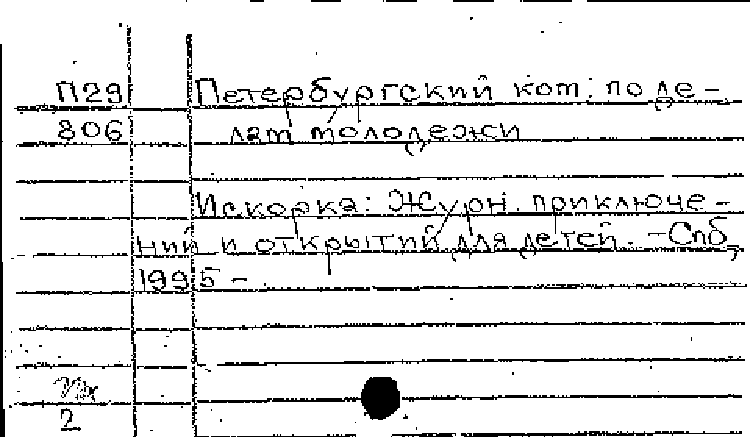 П29 Петербургский ком. по де-
806 лам молодежи
Искорка: Журн. приключе-
ний и открытий для детей. - Спб,
1995 -
2